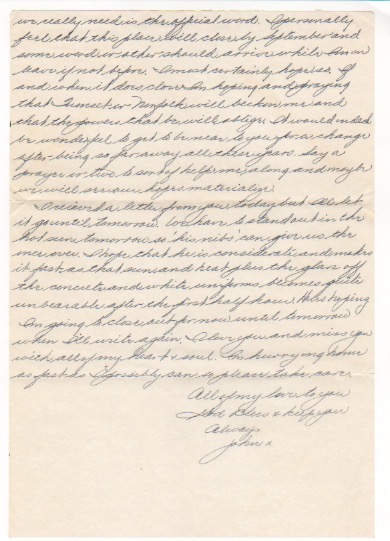 we really need is the official word. I personally
feel that this place will close by September and
some word or other should arrive while I'm on
leave if not before. I most certainly hope so. If
and when it does close I'm hoping and praying
that Sumset or Norfolk will beckon me and
that the powers that be will oblige. It would indeed
be wonderful to get to be near to you for a change
after being so far away all these years. Say a
prayer or two to sort of help me along and maybe
we will see our hopes materialize.
I received a letter from you today but I'll let
it go until tomorrow. We have to stand out in the
hot sun tomorrow so 'his nibs' can give us the
once over. I hope that he is considerate and makes
it fast as that sun and heat plus the glare off
the concrete and white uniforms becomes quite
unbearable after the first half hour. Here's hoping
I'm going to close out for now until tomorrow
when I'll write again. I love you and miss you
with all of my heart & soul. I'm hurrying home
as fast as I possibly can so please take care.
All of my love to you
God Bless & keep you
Always
John x